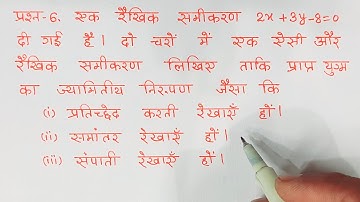 प्रश्न-6. एक रैखिक समीकरण 2x+3y-8=0
दी गई है। दो चरों में एक ऐसी और
रैखिक समीकरण लिखिए ताकि प्राप्त युग्म
का ज्यामितीय निरूपण जैसा कि
(i) प्रतिच्छेद करती रेखाएँ हों।
(ii) समांतर रेखाएँ हों।
(iii) संपाती रेखाएँ हों।